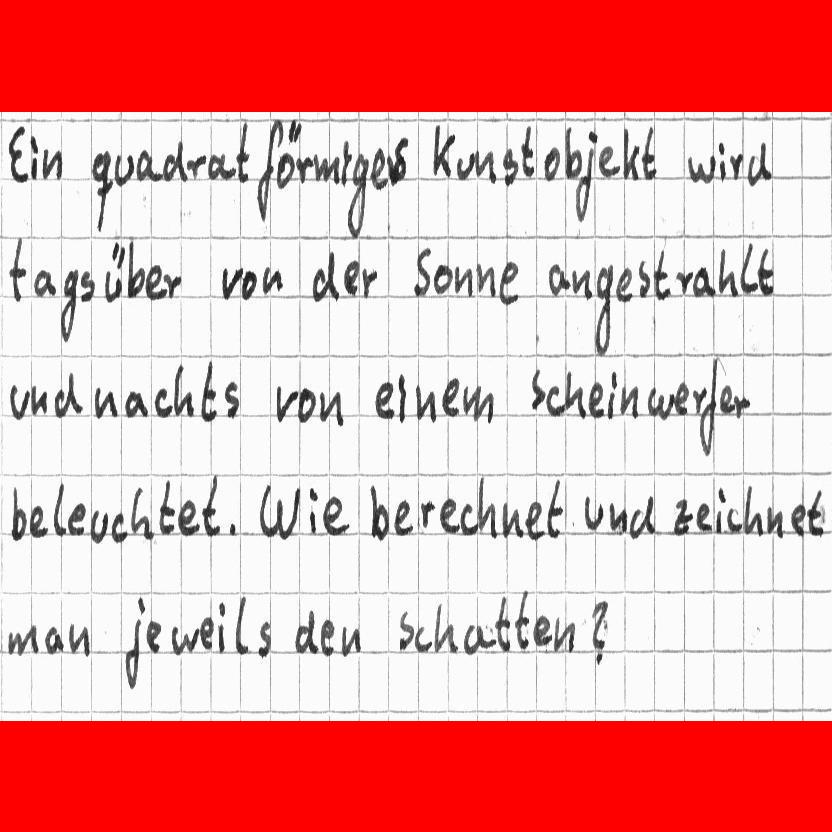 Ein quadratförmiges Kunstobjekt wird
tagsüber von der Sonne angestrahlt
und nachts von einem Scheinwerfer
beleuchtet. Wie berechnet und zeichnet
man jeweils den Schatten?